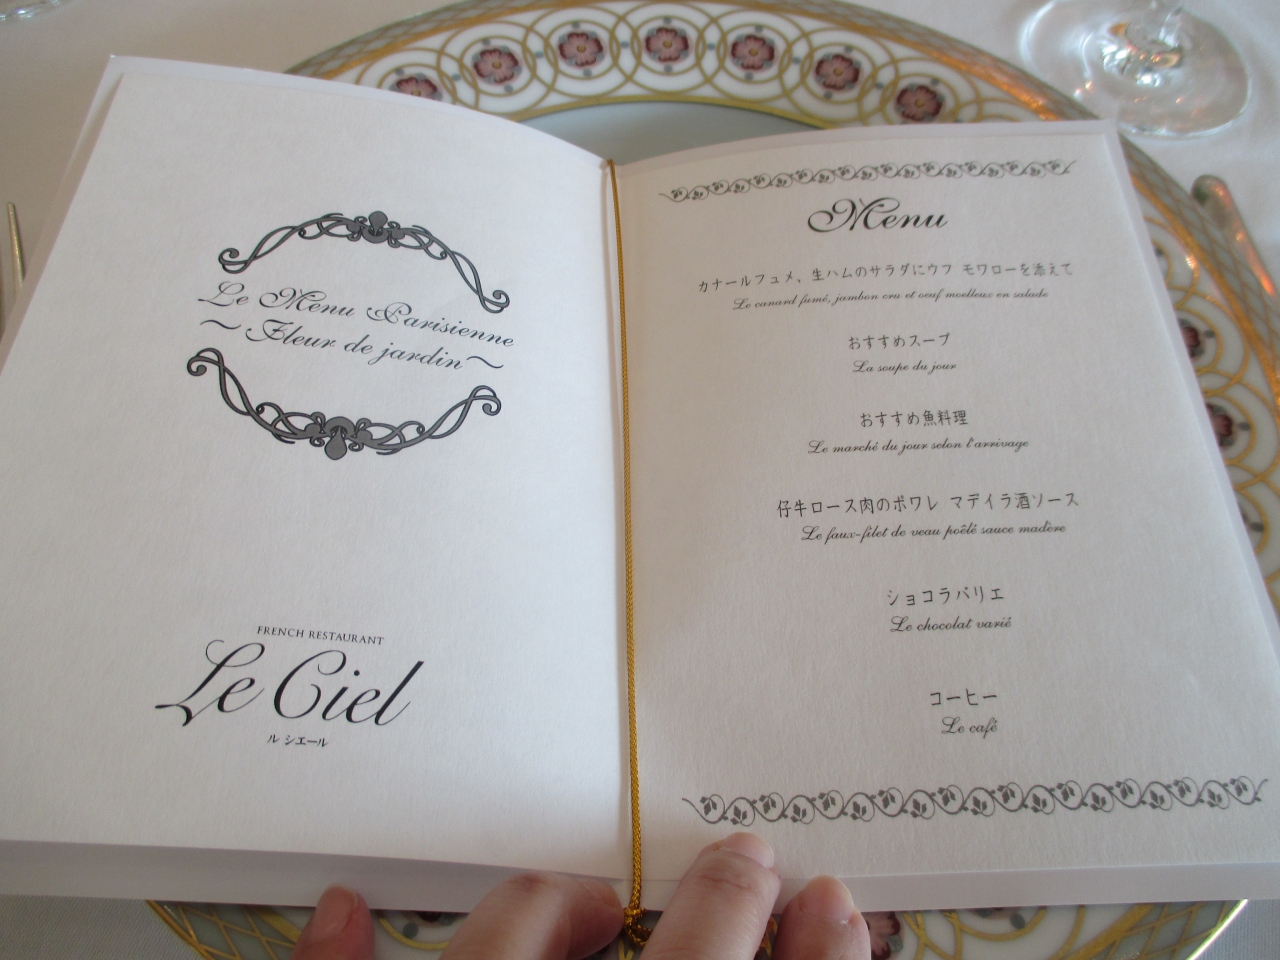 Le Menu Parisienne
～Fleur de jardin～
FRENCH RESTAURANT
Le Ciel
ル シエール
Menu
カナールフュメ、生ハムのサラダにウフ モワローを添えて
Le canard fumé, jambon cru et oeuf moelleux en salade
おすすめスープ
La soupe du jour
おすすめ魚料理
Le marché du jour selon l'arrivage
仔牛ロース肉のポワレ マデイラ酒ソース
Le faux-filet de veau poêlé sauce madère
ショコラバリエ
Le chocolat varié
コーヒー
Le café